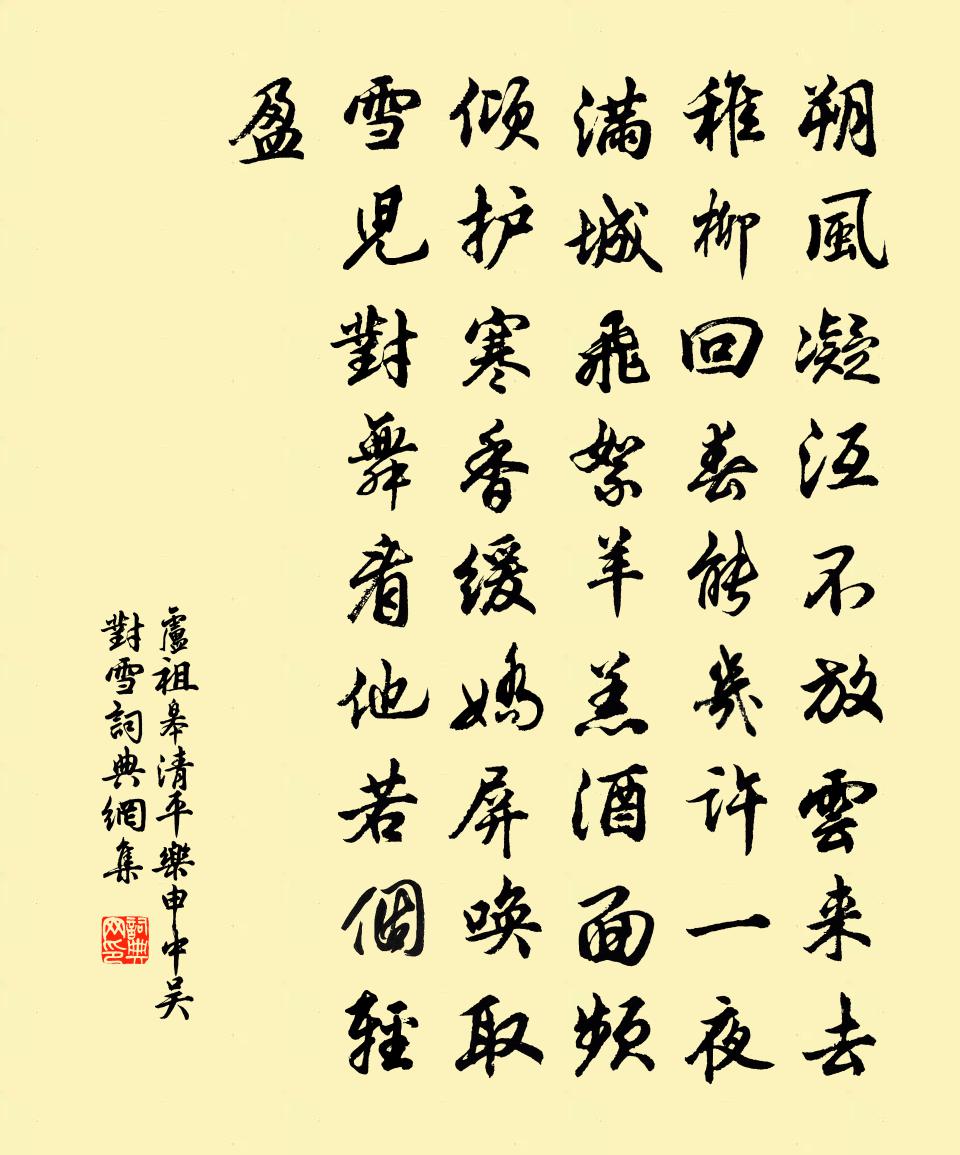 朔風凝沍不放雲来去
稚柳回春能幾許一夜
滿城飛絮羊羔酒面頻
傾护寒香緩嬌屏喚取
雪児對舞看他若個輕
盈
盧祖皋清平樂申中吴
對雪詞典網集
詞典
网印